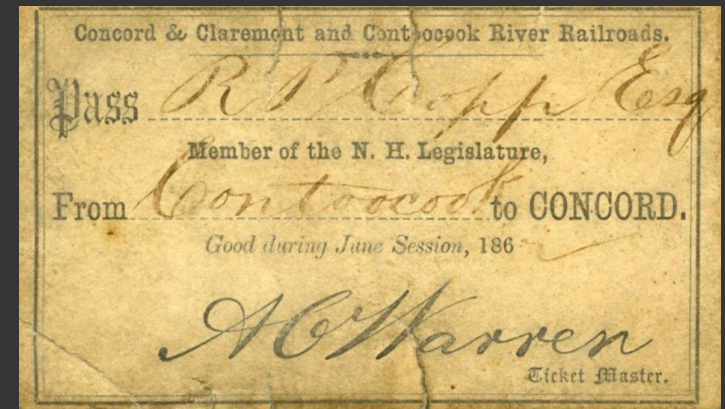 Concord & Claremont and Contoocook River Railroads.
Pass R P Copp Esq
Member of the N. H. Legislature,
From Contoocook to CONCORD.
Good during June Session, 186
A C Warren
Ticket Master.